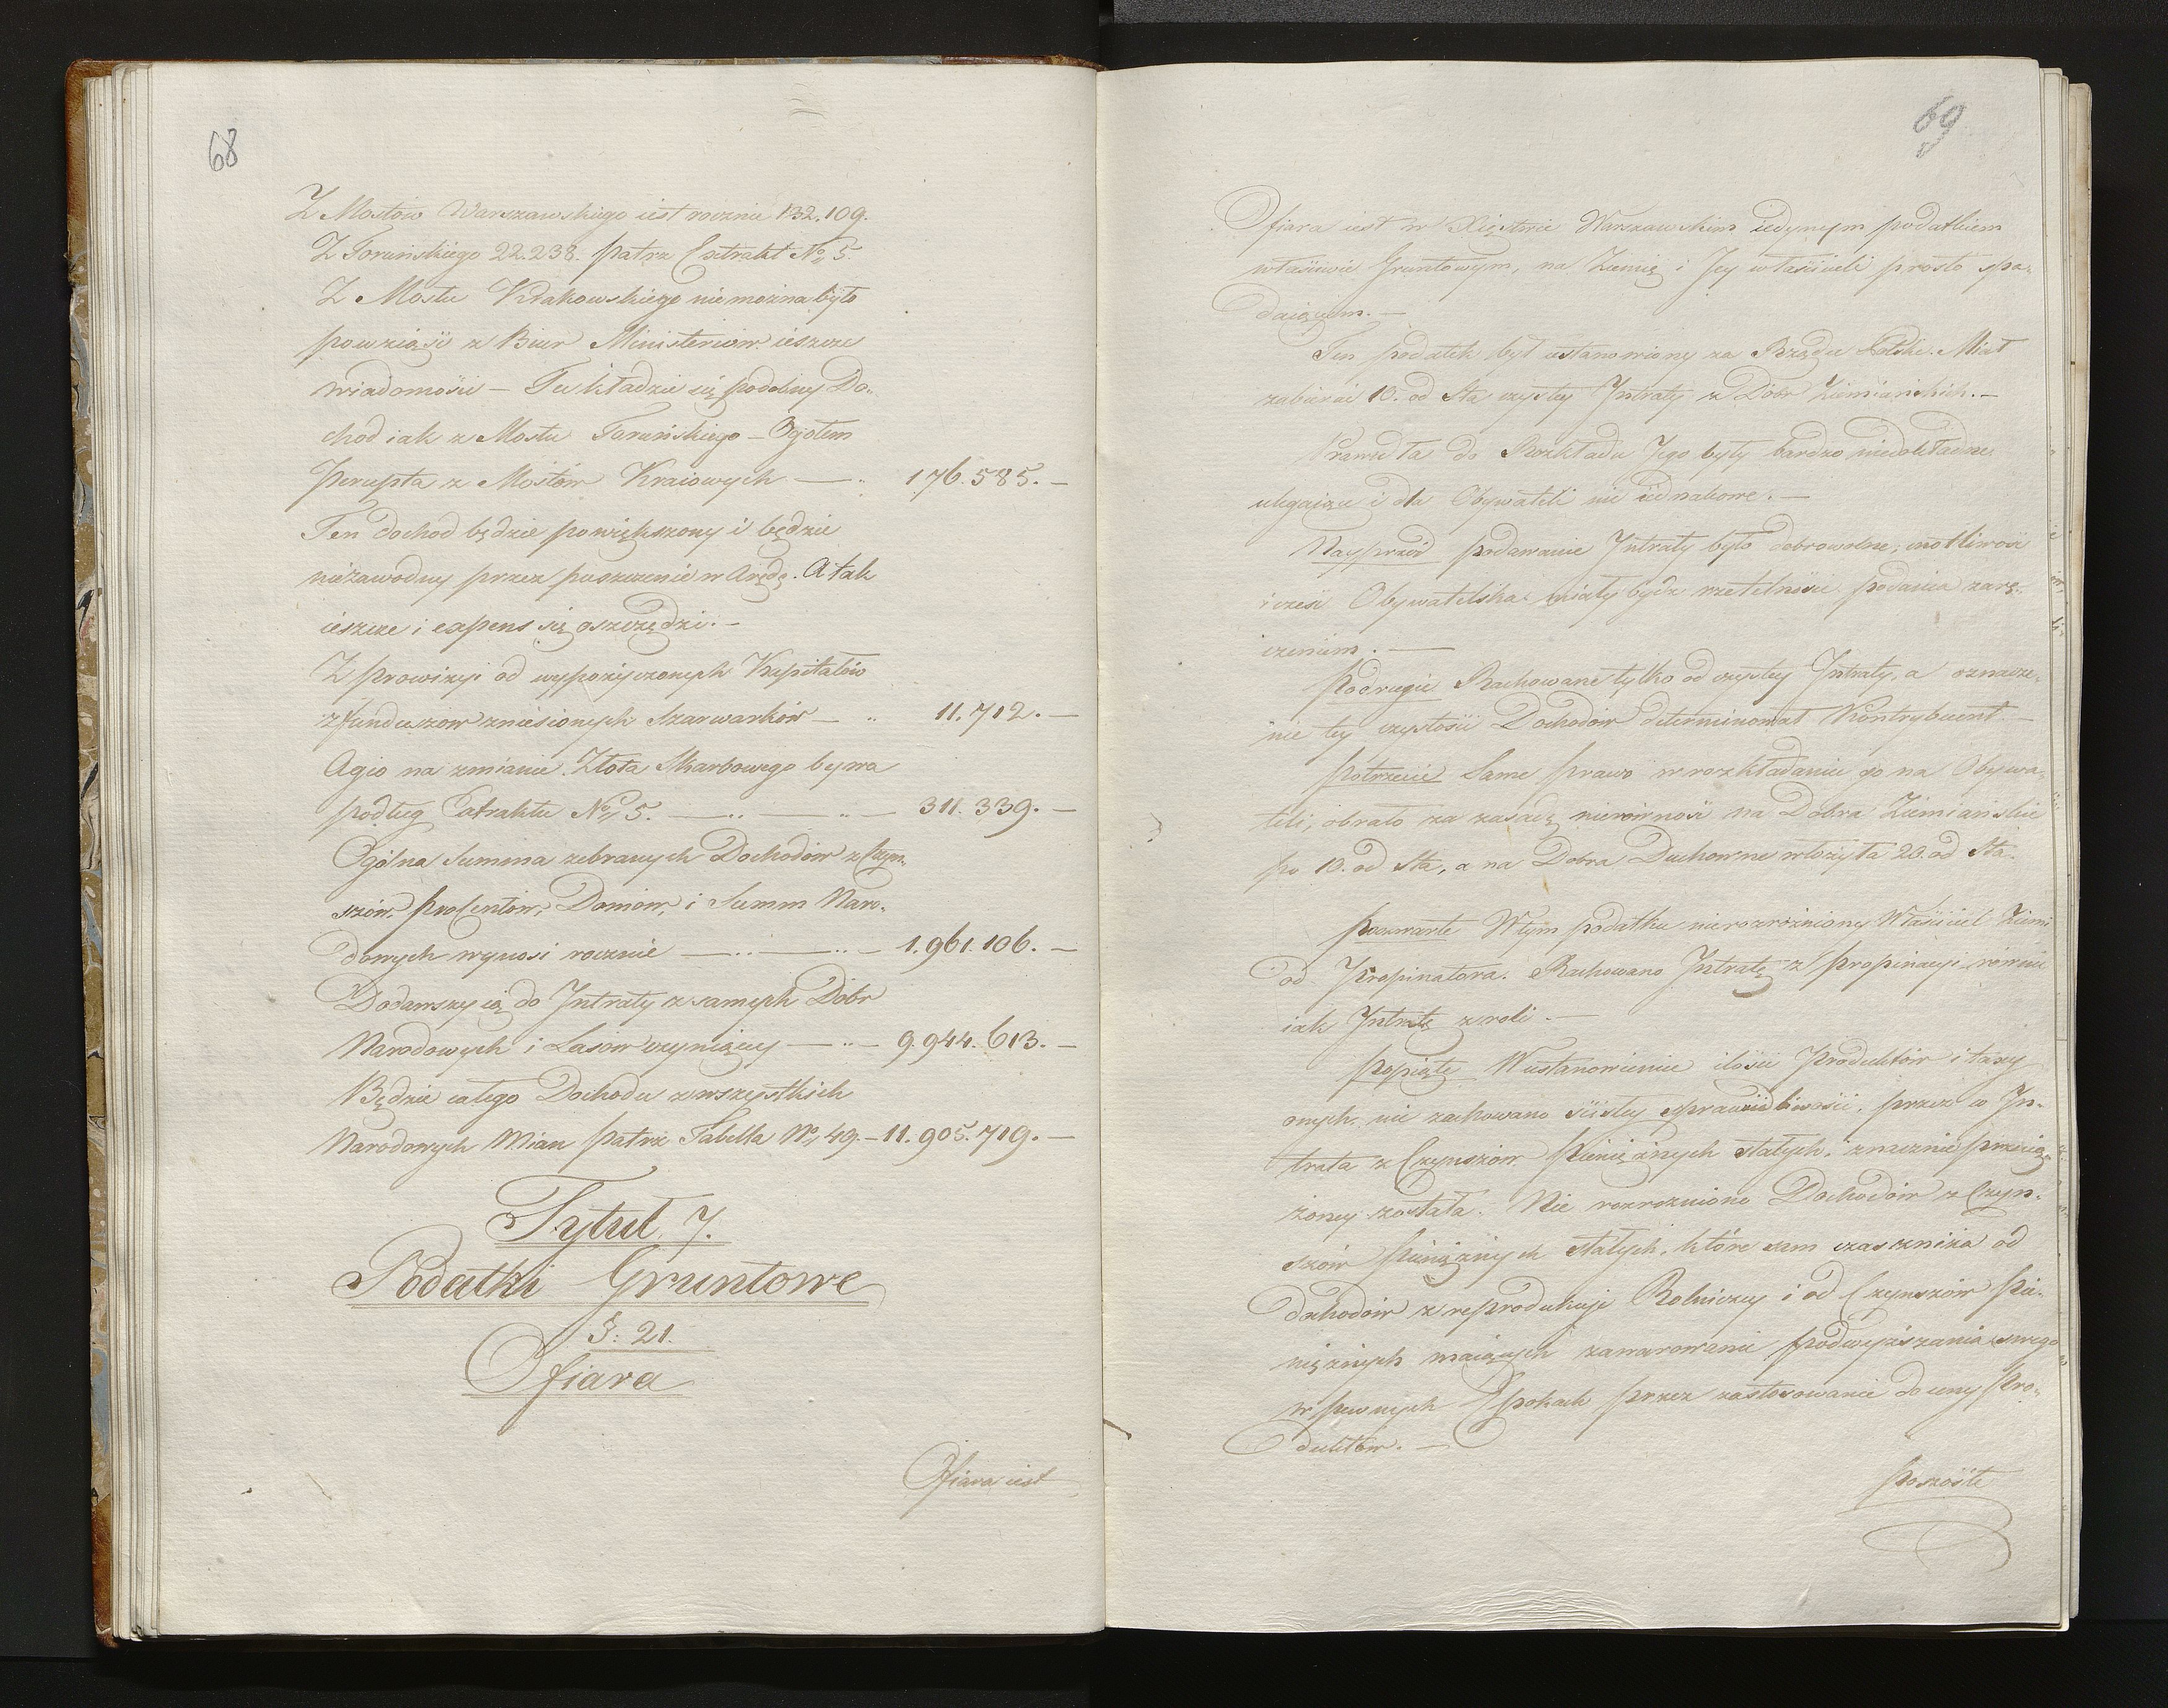 68
Z Mostów Warszawskiego iest rocznie 132.109.
Z Toruńskiego 22.238. patrz Extrakt No 5.
Z Mostu Krakowskiego nie można było
powziąść z Biur Ministeriów ieszcze
wiadomości — Tu kładzie się podobny Do„
chod iak z Mostu Toruńskiego — Ogołem
Percepta z Mostów Kraiowych — „ 176.585. —
Ten dochod będzie powiększony i będzie
niezawodny przez puszczenie w Arędę. A tak
ieszcze i expens się oszczędzi. —
Z prowizyi od wypożyczonych Kapitałów
z funduszów zniesionych Szarwarków — „ 11.712. —
Agio na zmianie Złota Skarbowego bywa
podług Extraktu No 5. — „ — „ — 311.339. —
Ogólna Summa zebranych Dochodów z Czyn„
szów, Procentów, Domów, i Summ Naro„
dowych wynosi rocznie — „ — „ — 1.961.106. —
Dodawszy ią do Intraty z samych Dóbr
Narodowych i Lasów czyniącey — „ — 9.944.613. —
Będzie całego Dochodu z wszystkich
Narodowych Mian patrz Tabella No 49. — 11.905.719. —
Tytuł 7.
Podatki Gruntowe
§: 21.
Ofiara
Ofiara iest
69
Ofiara iest w Xięstwie Warszawskim iedynym podatkiem
właściwie Gruntowym, na Ziemię i Jey właścicieli prosto spa„
daiącym. —
Ten podatek był ustanowiony za Rządu Polski. Miał
zabierać 10. od Sta czystey Intraty z Dóbr Ziemiańskich. —
Prawidła do Rozkładu Jego były bardzo niedokładne
ulegaiące i dla Obywateli nie iednakowe. —
Nayprzód podawanie Intraty było dobrowolne; cnotliwość
i cześć Obywatelska miały bydź rzetelności podania zarę„
czeniem. —
Podrugie Rachowane tylko od czystey Intraty, a oznacze„
nie tey czystości Dochodów determinował Kontrybuent. —
Potrzecie Same prawo w rozkładaniu go na Obywa„
teli, obrało za zasadę nierówność na Dobra Ziemiańskie
po 10. od Sta, a na Dobra Duchowne włożyła 20. od Sta.
Poczwarte W tym podatku nierozróżniony Właściciel Ziemi
od Propinatora. Rachowano Intratę z propinacyi równie
iak Intratę z roli. —
Popiąte W ustanowieniu ilości Produktów i taxy
onych, nie zachowano ścisłey sprawiedliwości, przez co In„
trata z Czynszów Pieniężnych stałych, znacznie przecią„
żoney została. Nie rozrozniono Dochodów z Czyn„
szów Pieniężnych stałych, które sam czas zniża od
dochodów z reprodukcyi Rolniczey i od Czynszów Pie„
niężnych maiących zawarowanie podwyższania swego
w pewnych Epokach przez zastosowanie do ceny Pro„
duktów. —
Poszóste